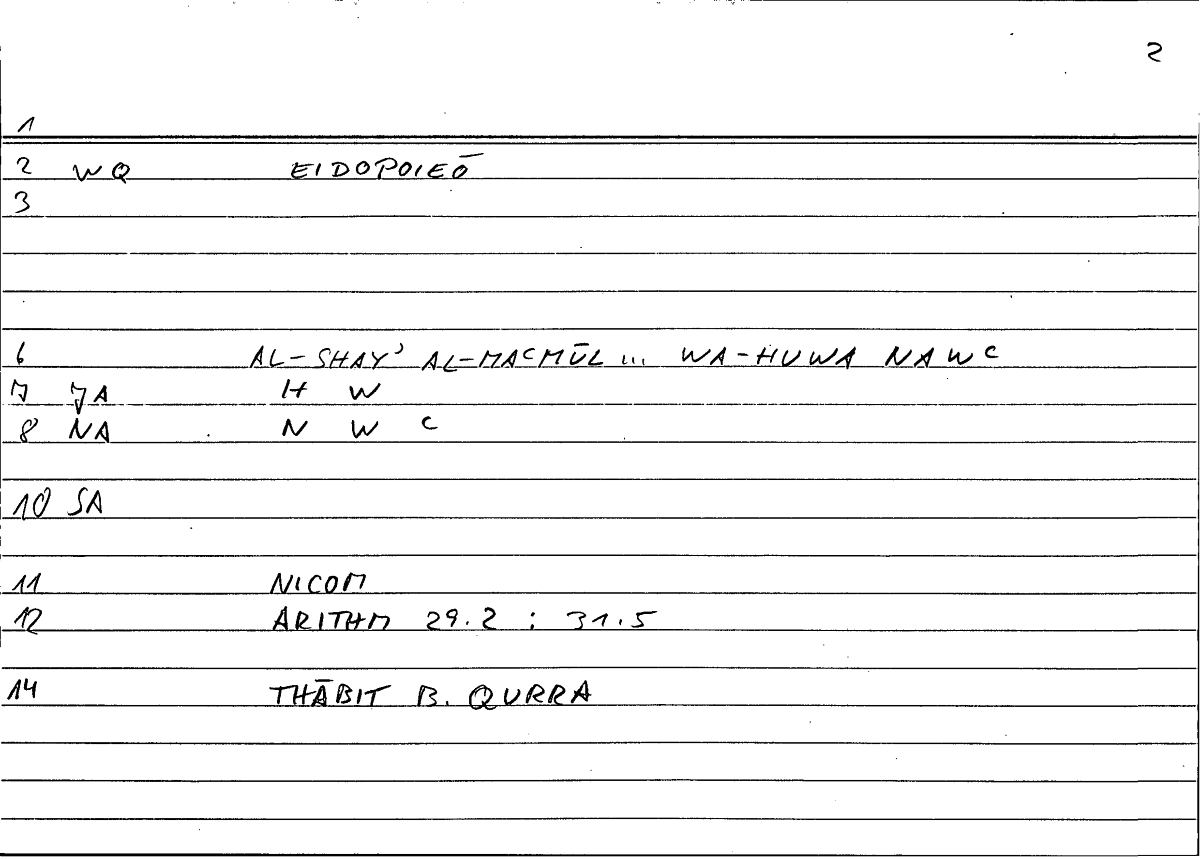 2
1
2 WQ EIDOPOIEŌ
3
6 AL-SHAYʾ AL-MAʿMŪL ... WA-HUWA NAWʿ
7 JA H W
8 NA N W ʿ
10 SA
11 NICOM
12 ARITHM 29.2 : 31.5
14 THĀBIT B. QURRA